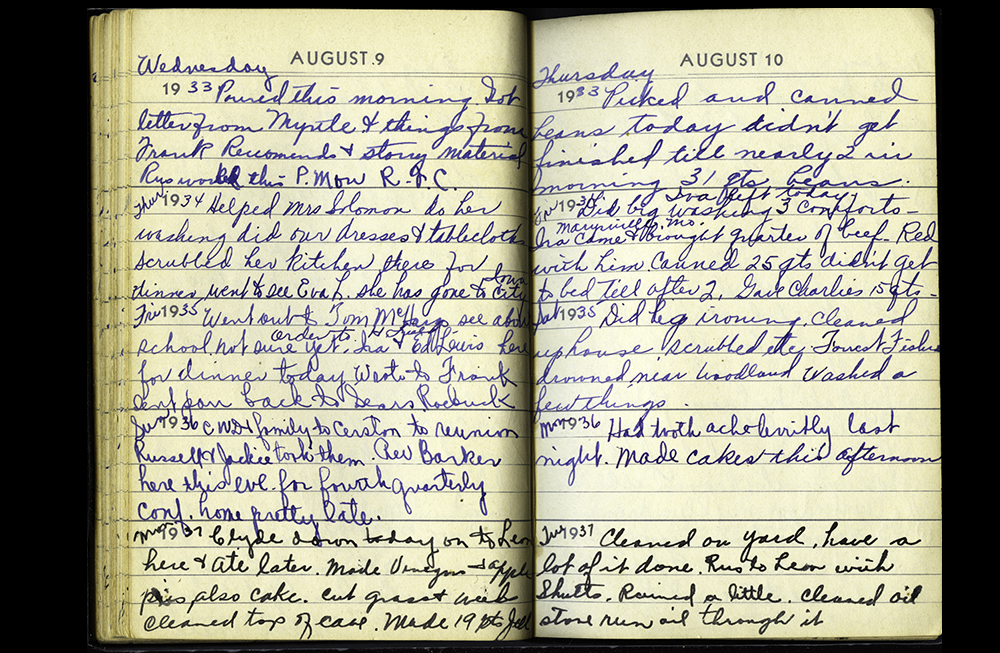 Wednesday
AUGUST 9
1933 Poured this morning. Got
letter from Myrtle & things from
Frank Recomends & story material
Rus worked this P. Mow R. J. C.
Thur 1934 Helped Mrs Solomon do her
washing did our dresses & tablecloths
scrubbed her kitchen there for
dinner went to see Eva L. she has gone to Iowa City
Fri 1935 Went out to Tom see about
school, not sure yet. Ira & Ed Lewis here
order to
for dinner today Wrote to Frank
sent pan back to Sears Roebuck
Sun 1936 C W D & family to Corston to reunion
Russell & Jackie took them. Rev Barker
here this eve. for fourth quarterly
conf. home pretty late.
Mon 1937 Clyde down today on to Leon
here & ate later. Made Vinegar & apple
pies also cake. cut grass & weeds
cleaned top of cave. Made 19 pts Jell
Thursday
AUGUST 10
1933 Picked and canned
beans today didn't get
finished till nearly 2 in
morning 31 qts beans.
Iva left today
Fri 1934 Did big washing 3 comforts -
Maryville, Mo.
Ira came & brought quarter of beef. Red
with him. Canned 25 qts didn't get
to bed till after 2, Gave Charlies 15 qts -
Sat 1935 Did big ironing. Cleaned
up house, scrubbed etc. Forrest Fisher
drowned near Woodland Washed a
few things.
Mon 1936 Had tooth ache terribly last
night. Made cakes this afternoon
Tue 1937 Cleaned on yard, have a
lot of it done. Rus to Leon with
Shutts. Rained a little. cleaned oil
stove run oil through it